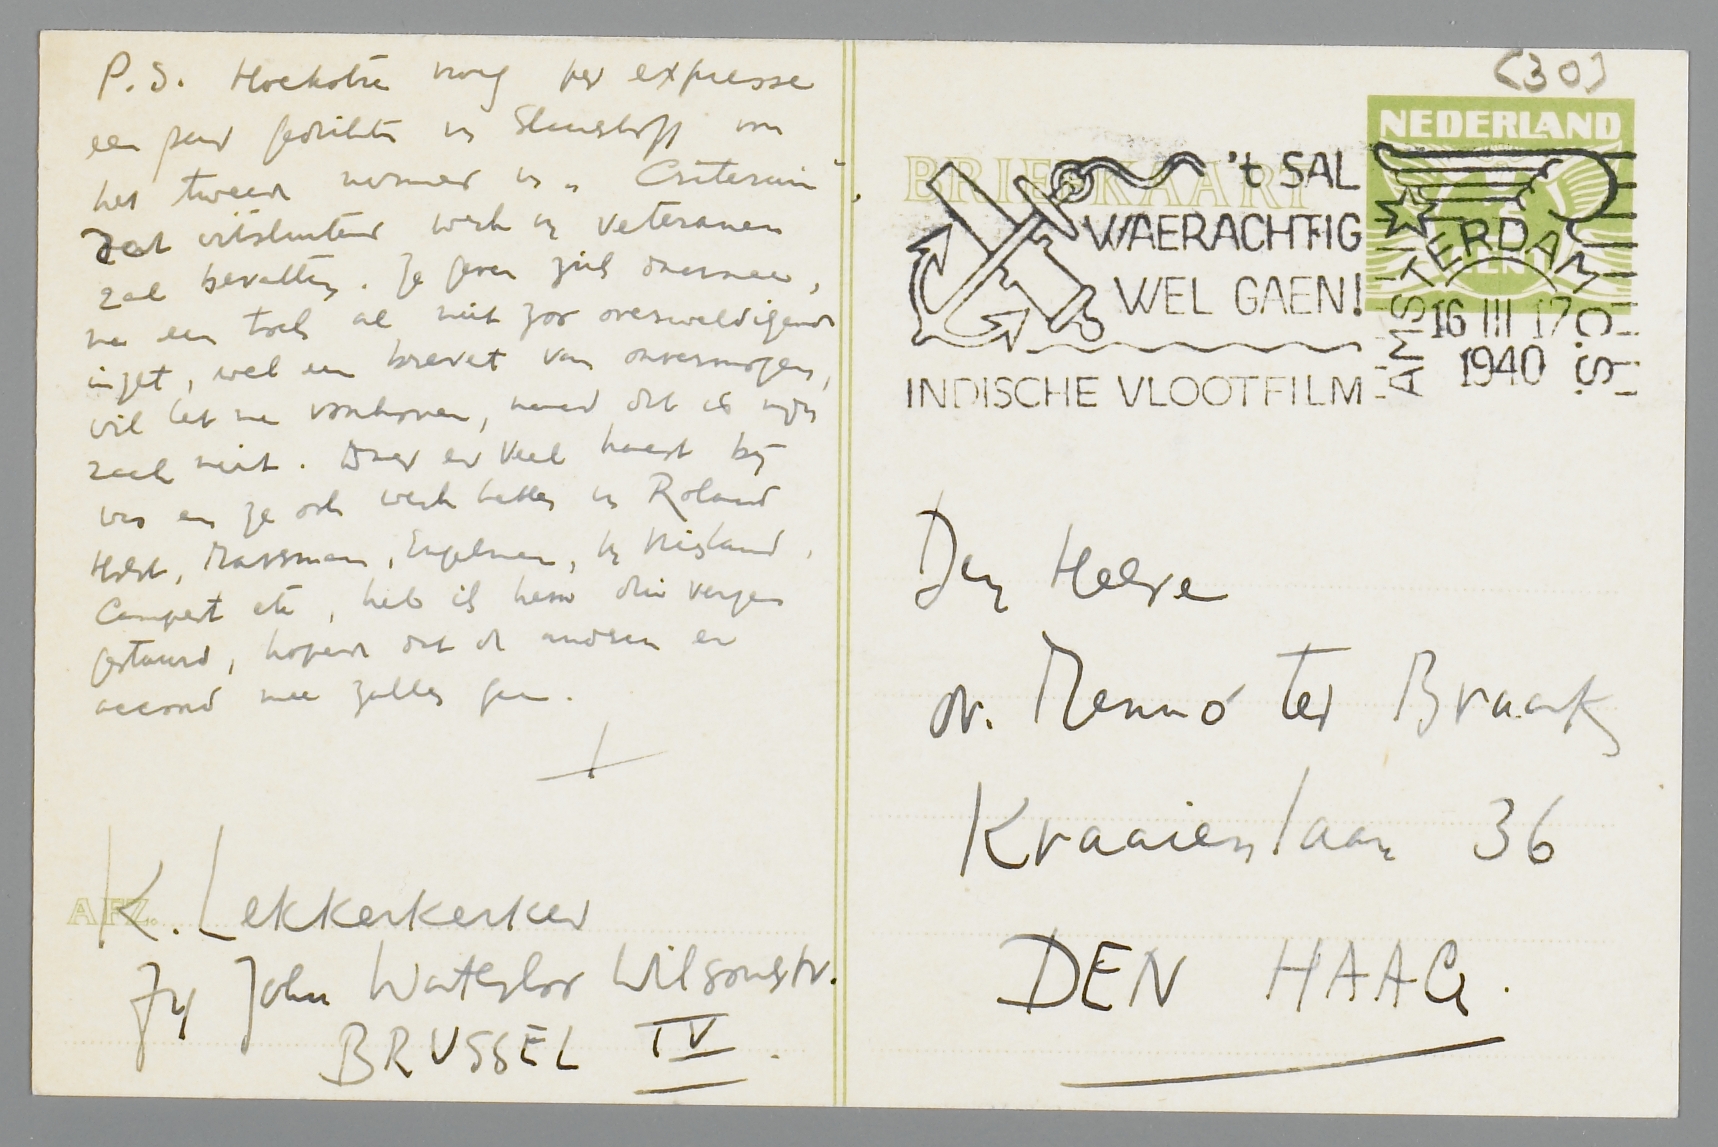 P.S. Hoekstra vroeg per expresse
een paar gedichten v. Slauerhoff voor
het tweede nummer v. "Criterium".
Dat uitsluitend werk v. veteranen
zal bevatten. Ze geven zich daarmee,
na een toch al niet zoo overweldigende
inzet, wel een brevet van onvermogen,
wil het me voorkomen, maar dat is mijn
zaak niet. Daar er veel haast bij
was en ze ook werk hebben v. Roland
Holst, Marsman, Engelman, v. Nijland,
Campert etc, heb ik hem drie verzen
gestuurd, hopende dat de anderen er
accoord mee zullen gaan.
AFZ. K. Lekkerkerker
74 John Waterloo Wilsonstr.
BRUSSEL IV.
(30)
NEDERLAND
BRIEFKAART
CENT
't SAL
WAERACHTIG
WEL GAEN!
INDISCHE VLOOTFILM
AMSTERDAM C.S.
16 III 17
1940
Den Heere
dr. Menno ter Braak
Kraaienlaan 36
DEN HAAG.